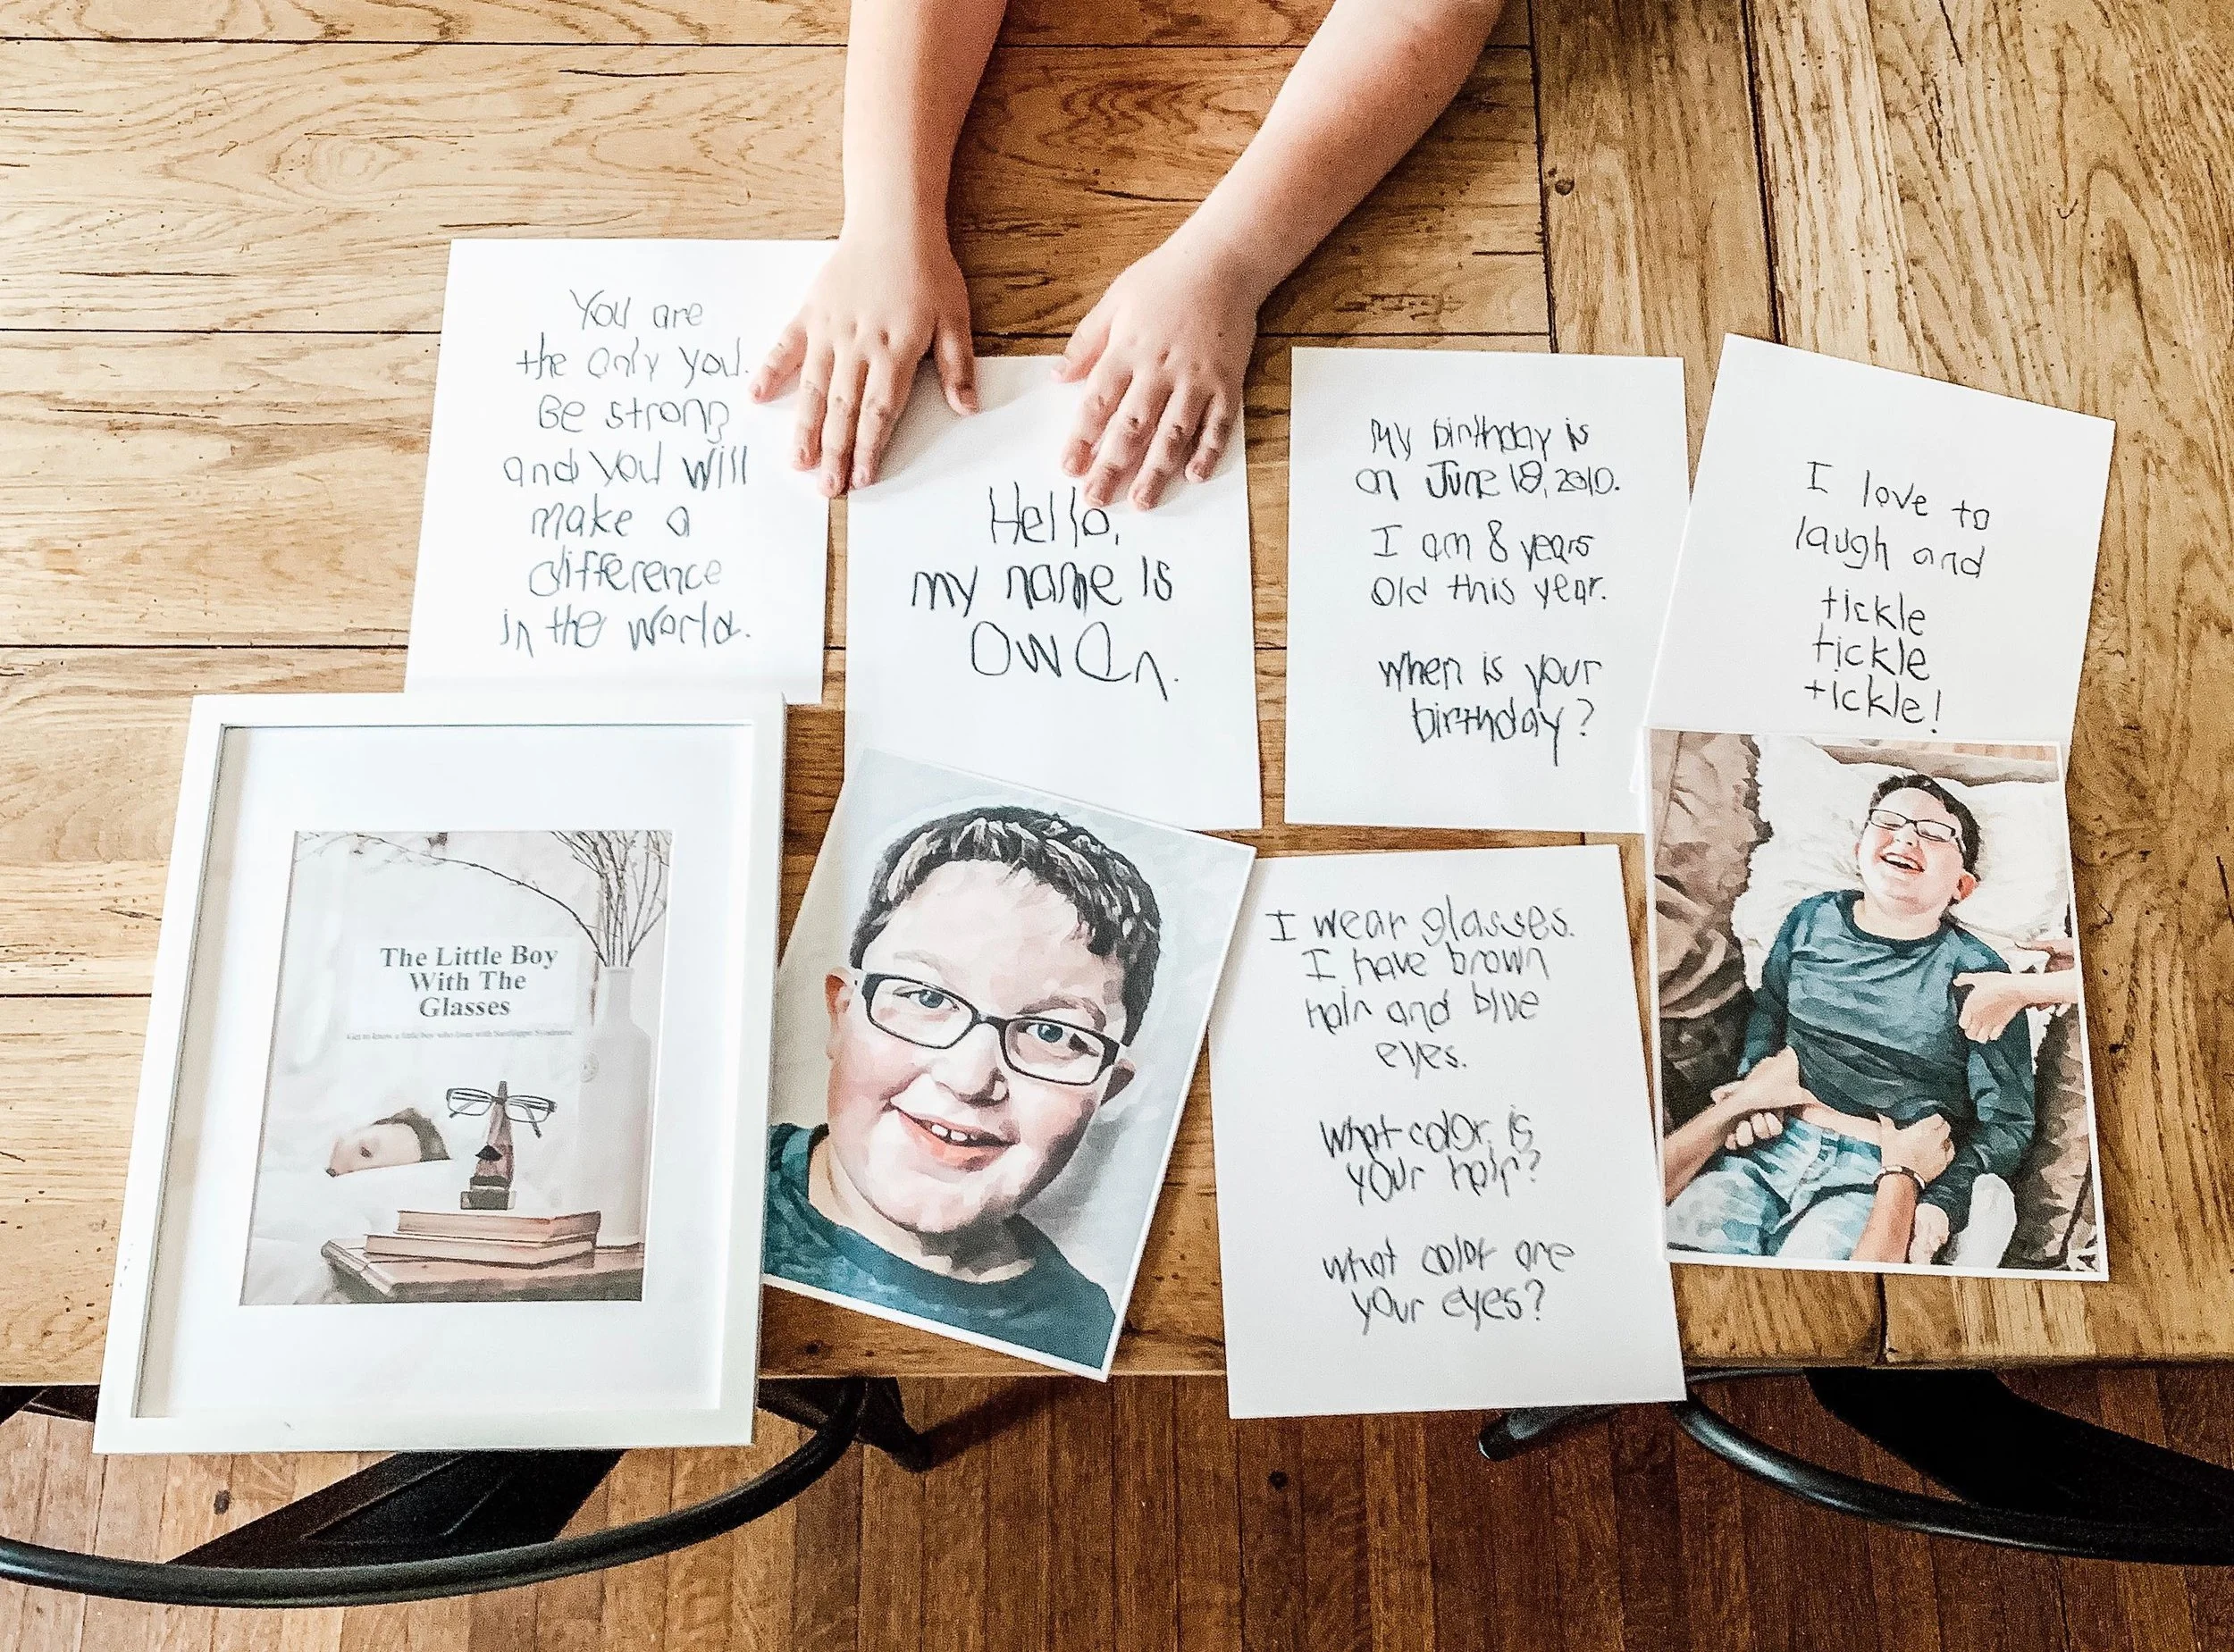 You are
the only you.
Be strong
and you will
make a
difference
in the world.
Hello,
my name is
Owen.
My birthday is
on June 18, 2010.
I am 8 years
old this year.
when is your
birthday?
I love to
laugh and
tickle
tickle
tickle!
The Little Boy
With The
Glasses
Get to know a little boy who lives with Sanfilippo Syndrome
I wear glasses.
I have brown
hair and blue
eyes.
What color is
your hair?
what color are
your eyes?